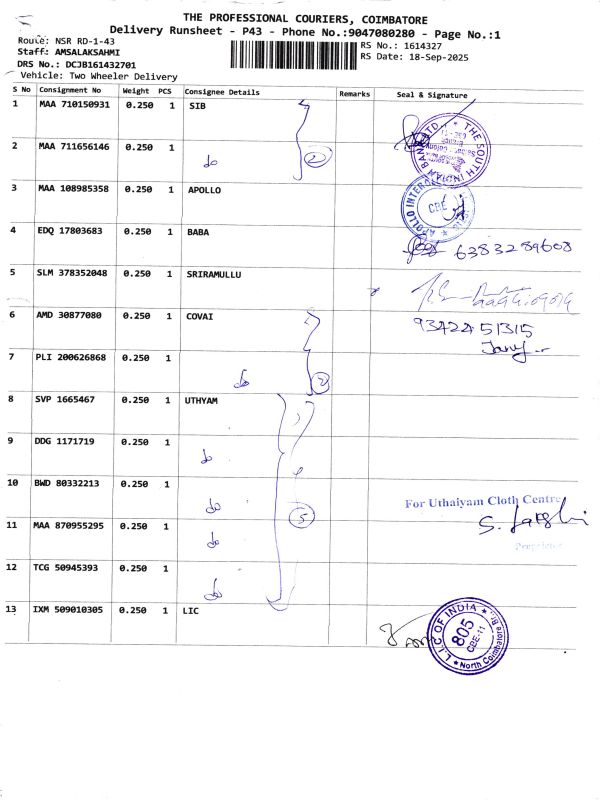 THE PROFESSIONAL COURIERS, COIMBATORE
Delivery Runsheet - P43 - Phone No.:9047080280 - Page No.:1
Route: NSR RD-1-43
Staff: AMSALAKSAHMI
DRS No.: DCJB161432701
Vehicle: Two Wheeler Delivery
RS No.: 1614327
RS Date: 18-Sep-2025
S No Consignment No Weight PCS Consignee Details Remarks Seal & Signature
1 MAA 710150931 0.250 1 SIB
2 MAA 711656146 0.250 1 do 2
THE SOUTH INDIAN BANK LTD.
3 MAA 108985358 0.250 1 APOLLO
CBE
4 EDQ 17803683 0.250 1 BABA 6383289608
5 SLM 378352048 0.250 1 SRIRAMULLU
6 AMD 30877080 0.250 1 COVAI 9342451315
7 PLI 200626868 0.250 1 do 2
8 SVP 1665467 0.250 1 UTHYAM
9 DDG 1171719 0.250 1 do
10 BWD 80332213 0.250 1 do
For Uthaiyam Cloth Centre
11 MAA 870955295 0.250 1 do 5
Proprietor
12 TCG 50945393 0.250 1 do
13 IXM 509010305 0.250 1 LIC
L.I.C OF INDIA
805
CBE-11
North Coimbatore